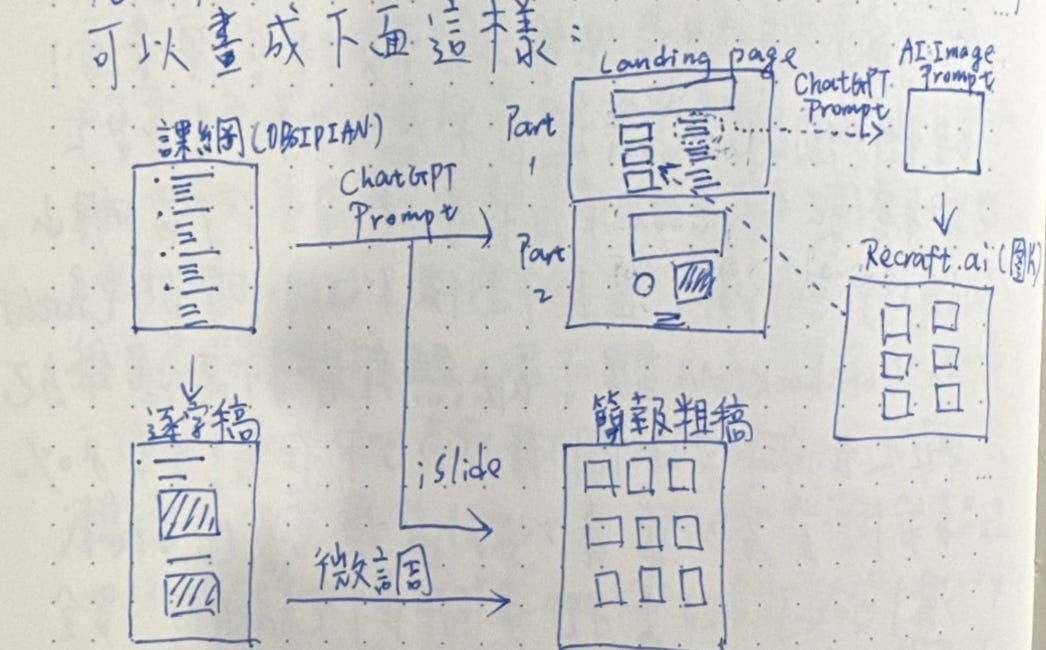 可以畫成下面這樣：
Landing page
AI Image
Prompt
ChatGPT
Prompt
Part
1
課綱圖(OBSIDIAN)
ChatGPT
Prompt
Part
2
Recraft.ai (圖片)
逐字稿
簡報粗稿
islide
微調